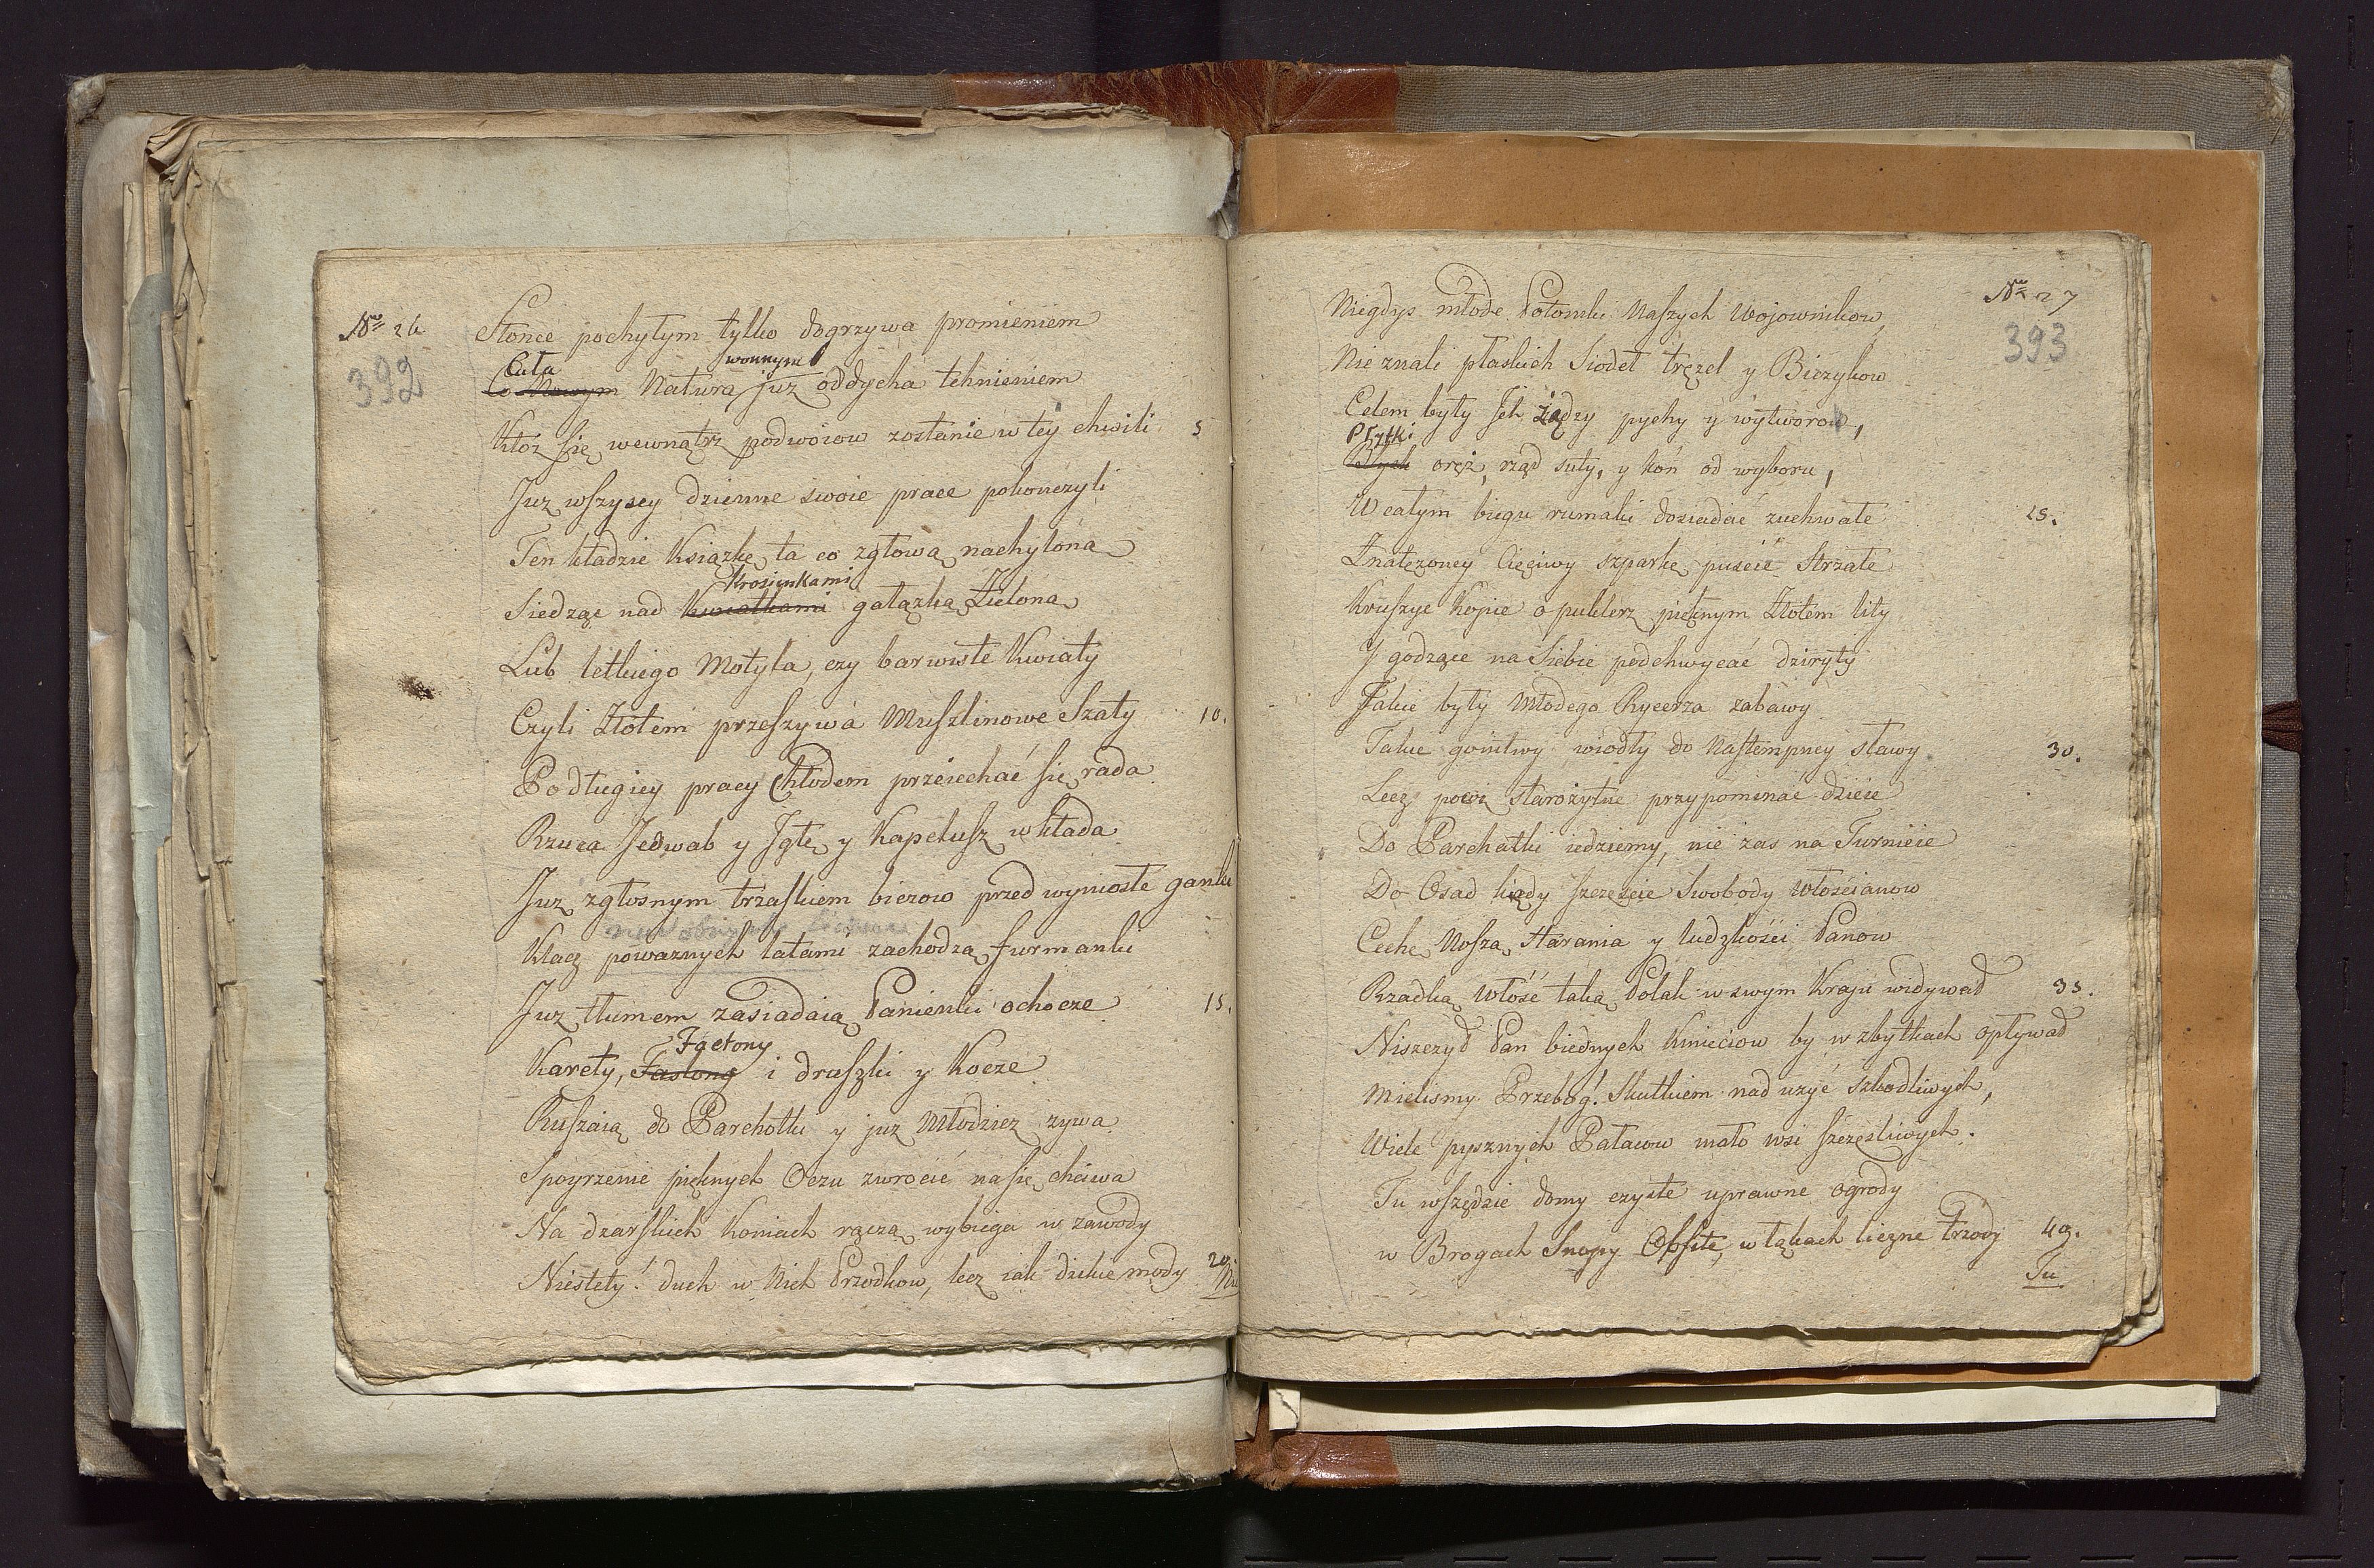 Nro 26
392
Słonce pochyłym tylko dogrzywa promieniem
Cała wonnym
Co Nowym Natura już oddycha tchnieniem
Któż się wewnątrz podwoiow zostanie w tey chwili 5
Juz wszyscy dzienne swoie prace pokonczyli
Ten kładzie Książkę, ta co z głową nachyloną
Krosienkami
Siedząc nad Kwiatkami gałązką Zieloną
Lub letkiego Motyla, czy barwiste Kwiaty
Czyli Złotem przeszywa Muszlinowe Szaty 10.
Po długiey pracy Chłodem przeiechać się rada
Rzuca Jedwab y Jgłę y Kapelusz wkłada
Juz z głosnym trzaskiem biczow przed wyniosłe ganki
Klacz powaznych latami zachodzą furmanki
Juz tłumem zasiadaią Panienki ochocze 15.
Faetony
Karety, Faslong i druszki y Kocze
Ruszaią do Parchotki y juz Młodziez zywa
Spoyrzenie pięknych Oczu zwrocić na się chciwa
Na dzarskich Koniach rączą wybiega w zawody
Niestety! duch w Nich Przodkow, lecz iak dzikie mody 20.
Nie
Nro 27
393
Niegdys młode Potomki Naszych Wojownikow
Nie znali płaskich Siodeł tręzel y Biczykow
Celem były Jch żądzy pychy y wytworow,
Płytki
Błysk oręż, rząd suty, y koń od wyboru,
W całym biegu rumaki dosiadać zuchwałe 25.
Z natęzoney Cięciwy szparką puścić Strzałe
Kruszyc Kopie o puklerz pięknym Złotem lity
J godzące na Siebie podchwycać dziryty
Jakie były Młodego Rycerza zabawy
Takie gonitwy wiodły do Nastempney sławy 30.
Lecz pocoz starożytne przypominać dzieie
Do Parchatki iedziemy, nie zas na Turnieie
Do Osad kiędy szczęście Swobody Włościanow
Cechę Noszą Starania y ludzkości Panow
Rzadką włość taką Polak w swym Kraju widywał 35.
Niszczył Pan biednych Kmieciow by w zbytkach opływał
Mielismy Przebog! Skutkiem nad uzyć szkodliwych,
Wiele pysznych Pałacow mało wsi szczęsliwych.
Tu wszędzie domy czyste uprawne ogrody
w Brogach Snopy Obfite, w łąkach liczne trzody 40.
Tu